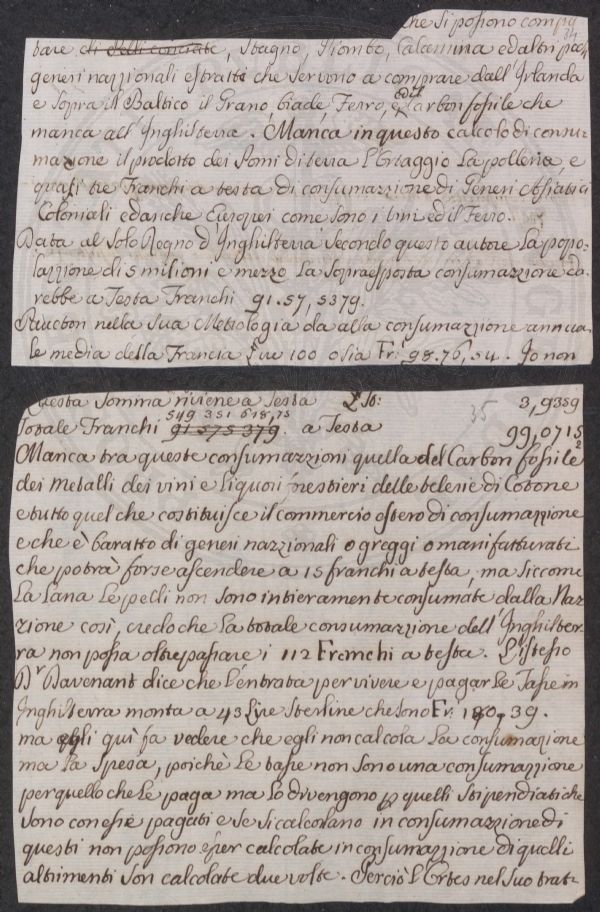 che si possono compu
34
tare di delli contrate, Stagno, Piombo, Calamina ed altri pochi
generi nazzionali estratti che servono a comprare dall'Irlanda
e sopra il Baltico il Grano, biade, Ferro, e del Carbon fossile che
manca all'Inghilterra. Manca in questo calcolo di consu-
mazione il prodotto dei Pomi di terra l'Ortaggio la polleria, e
quasi tre Franchi a testa di consumazzione di Generi Asiatici
Coloniali ed anche Europei come sono i vini ed il Ferro.
Data al solo Regno d'Inghilterra secondo questo autore la popo-
lazzione di 5 milioni e mezzo la sopraesposta consumazzione da-
rebbe a Testa Franchi 91.57,5379.
nella sua Metrologia da alla consumazzione annua-
le media della Francia Lire 100 o sia Fr. 98.76,54. Io non
Questa somma riviene a Testa L. St: 35 3,9359
549 351 618,75
Totale Franchi 91 575 379. a Testa 99,0715
2
Manca tra queste consumazzioni quella del Carbon fossile
dei metalli dei vini e liquori forestieri delle telerie di Cotone
e tutto quel che costituisce il commercio estero di consumazzione
e che è baratto di generi nazzionali o greggi o manifatturati
che potrà forse ascendere a 15 franchi a testa, ma siccome
la lana le pelli non sono intieramente consumate dalla Naz-
zione così, credo che la totale consumazzione dell'Inghilter-
ra non possa oltrepassare i 112 Franchi a testa. L'istesso
Dr Davenant dice che l'entrata per vivere e pagar le Tasse in
Inghilterra monta a 43 Lire Sterline che sono Fr. 180.39.
ma egli qui fa vedere che egli non calcola la consumazione
ma la spesa, poichè le tasse non sono una consumazzione
per quello che le paga ma lo divengono p quelli stipendiati che
sono con esse pagati e se si calcolano in consumazzione di
questi non possono esser calcolate in consumazzione di quelli
altrimenti son calcolate due volte. Perciò l'Ortes nel suo trat-